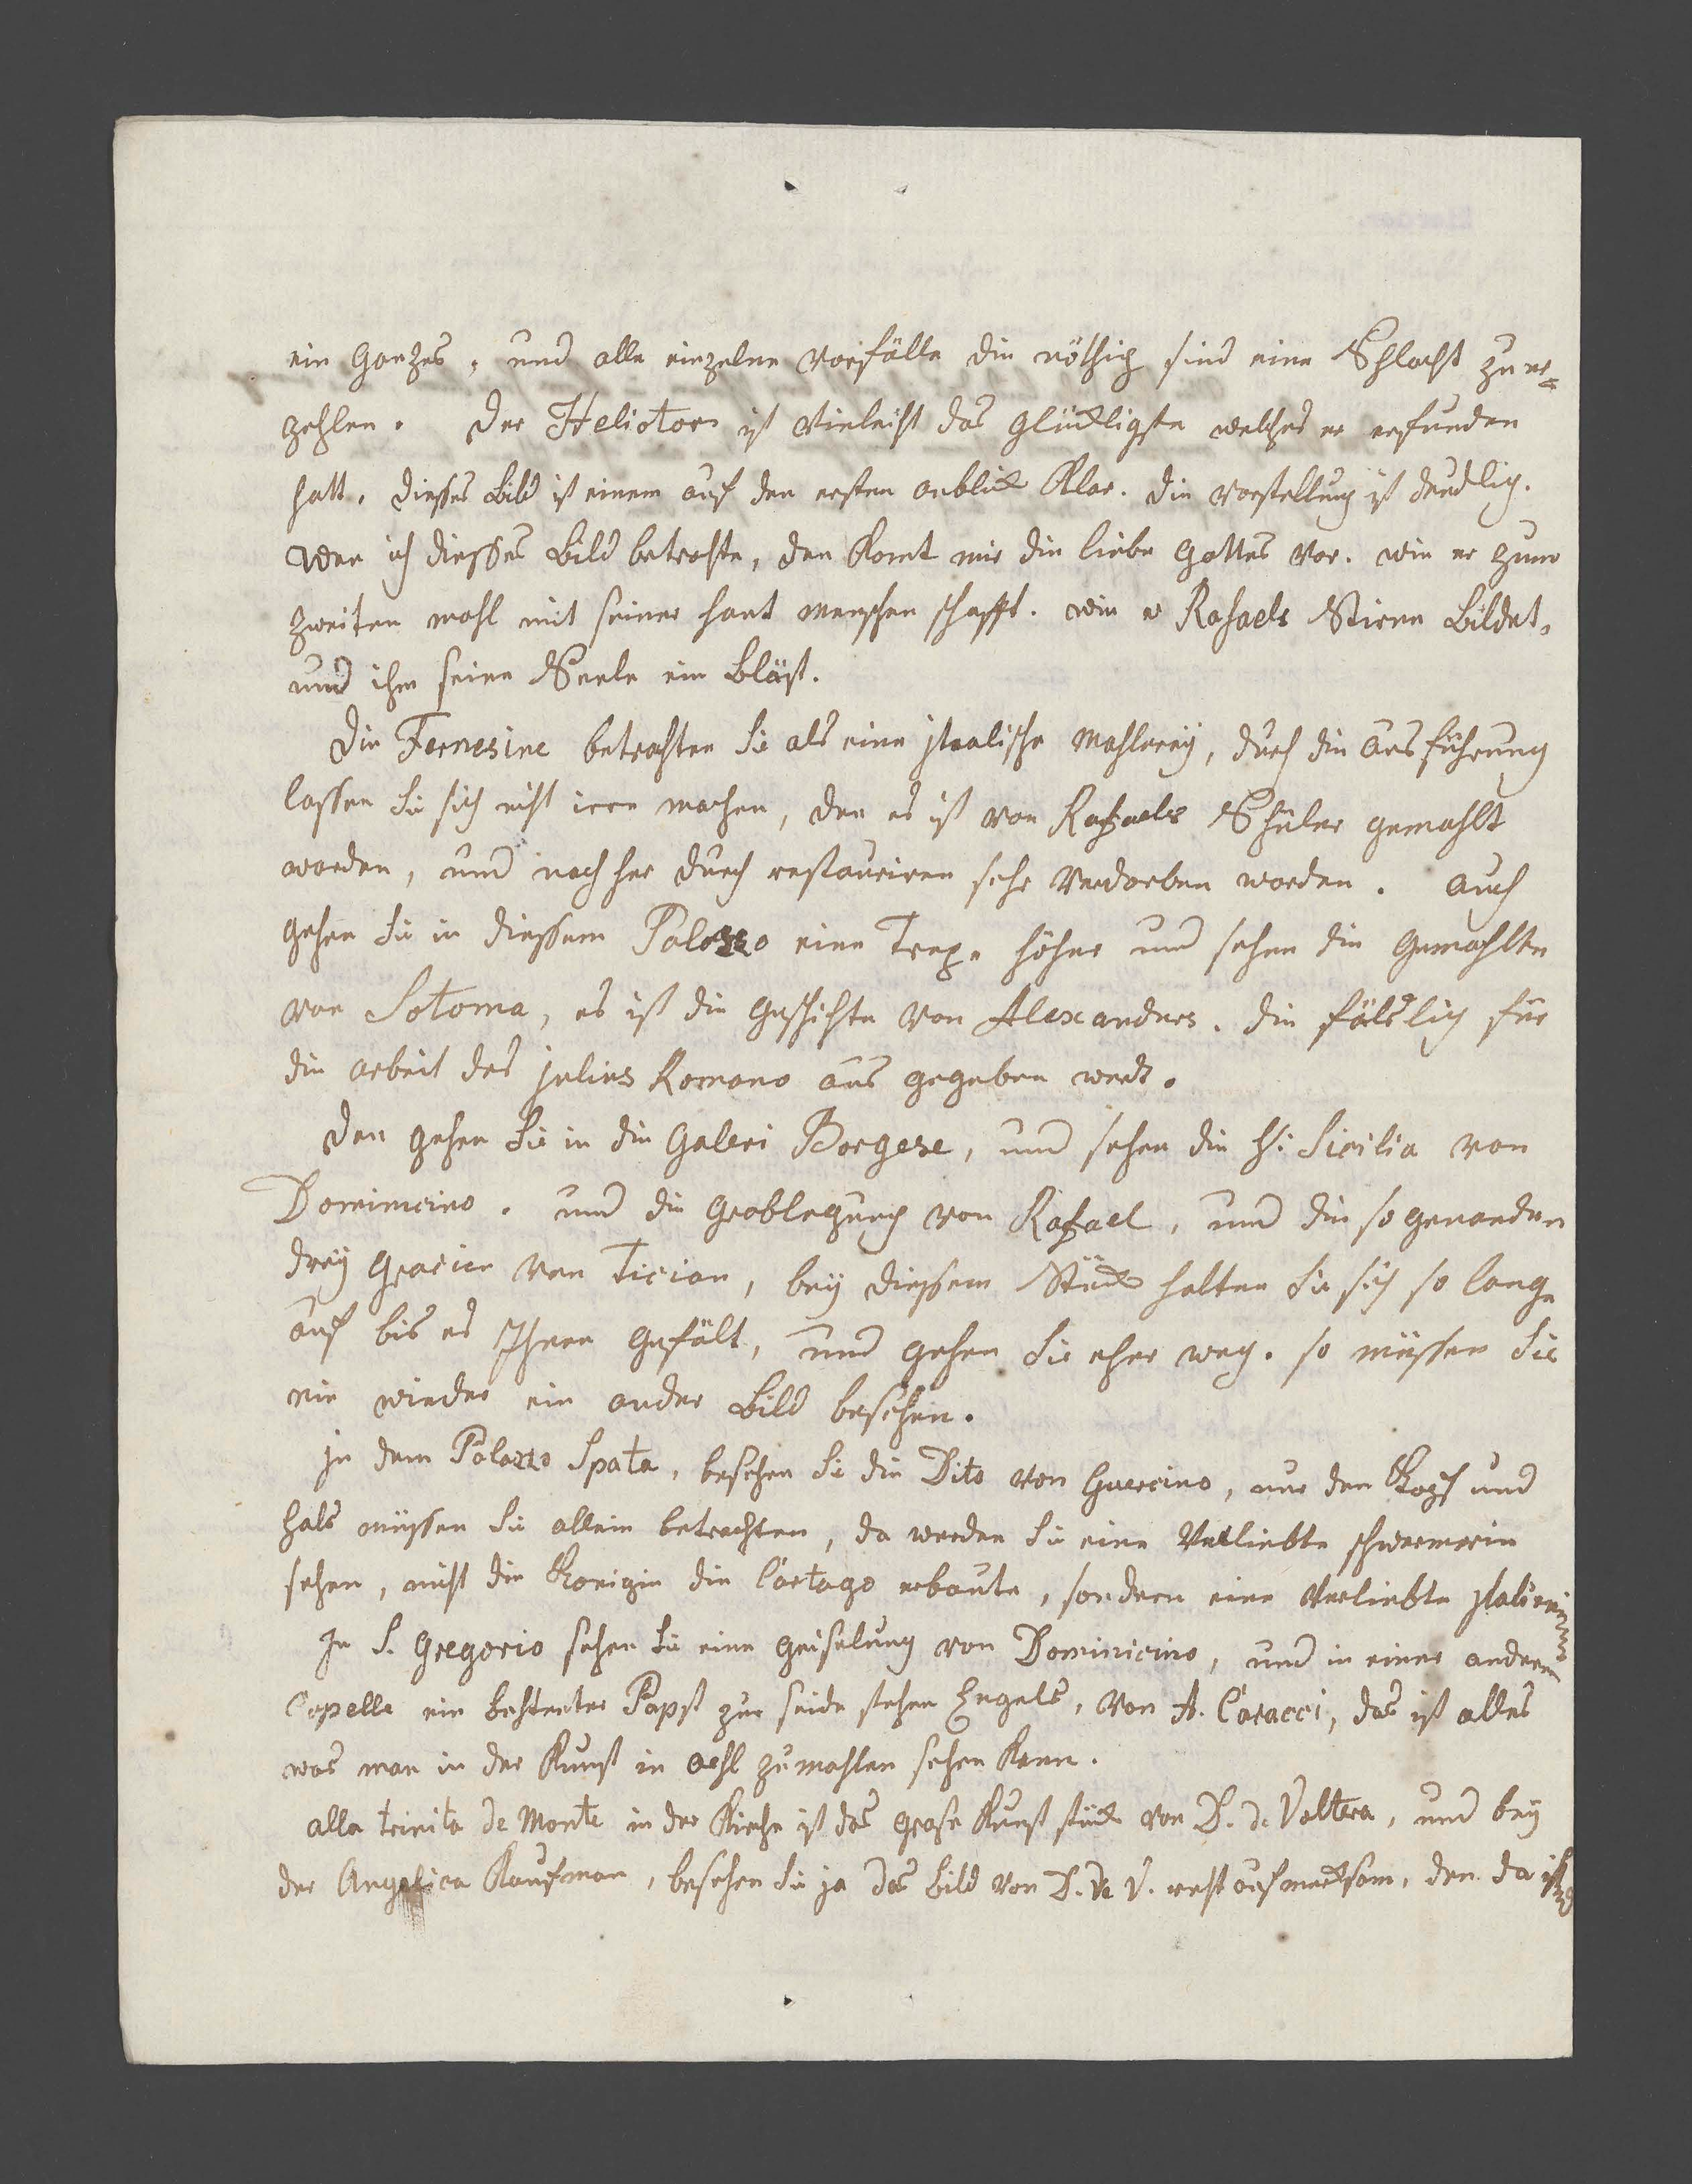 ein Ganzes, und alle einzelne Vorfälle die nöthig sind eine Schlacht zu er=
zehlen. Der Heliotor ist Vieleicht das glückligste welches er erfunden
hatt. dießes Bild ist einem auf den ersten anblick Klar. die Vorstellung ist deudlig.
Wen ich dießes Bild betrachte, den Komt mir die liebe Gottes Vor. wie er zum
zweiten mahl mit seiner hant menschen schafft. wie er Rafaels Stiren Bildet,
und ihm seine Seele ein Bläst.
Die Fernesine betrachten Sie als eine jtealische Mahlereÿ, durch die ausführung
lassen Sie sich nicht irre machen, den es ist von Rafaels Schüler gemahlt
worden, und nach her durch restauriren sehr Verdorben worden. auch
gehen Sie in dießem Palazzo eine Trepe höher und sehen die Gemählte
von Sotoma, es ist die Geschichte von Alexanders. die fälslig für
die arbeit des julius Romano aus gegeben werd.
Den gehen Sie in die Galeri Borgese, und sehen die H: Sicilia von
Dominicino. und die Grablegung von Rafael, und die so genanden
dreÿ Gracien von Tician, beÿ dießem Stück halten Sie sich so lange
auf bis es Ihnen Gefält, und gehen Sie eher weg. so müssen Sie
nie wieder ein ander Bild besehen.
jn dem Palazzo Spata, besehen Sie die Dito von Guercino, nur den Kopf und
hals müssen Sie allein betrachten, da werden Sie eine Verliebte schwermerin
sehen, nicht die Konigin die Cartago erbaute, sondern eine Verliebte jtalienerin
In S. Gregorio sehen Sie eine Geiselung von Dominicino, und in einer anderen
Capelle ein Papst zur seide stehen Engels, von A. Caracci, das ist alles
was man in der Kunst in oehl zu mahlen sehen Kann.
alla trinita de Monte in der Kirche ist das grose Kunst stück von D. de Voltera, und beÿ
der Angelica Kaufman, besehen Sie ja das Bild von D. de V. recht aufmercksam, den da ist